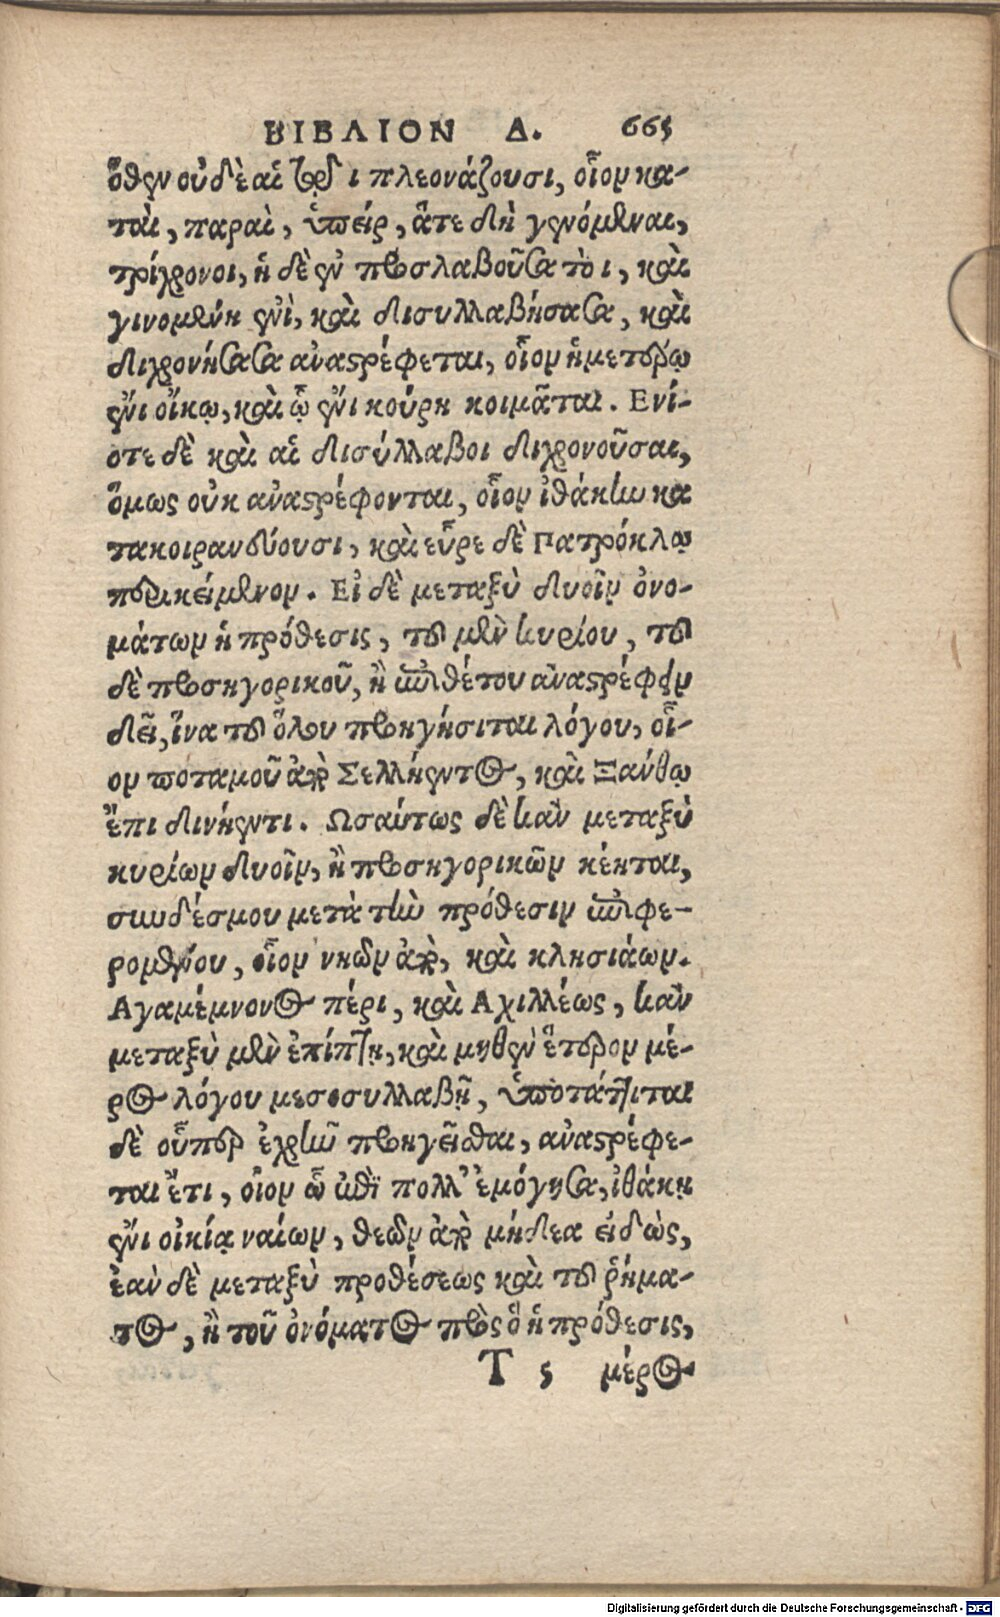 ΒΙΒΛΙΟΝ Δ. 665
ὅθεν οὐδὲ αἳ τῷ ι πλεονάζουσι, οἷον κα-
ταὶ, παραὶ, ὑπείρ, ἅτε δὴ γενόμεναι,
τρίχρονοι, ἡ δὲ ἐν προσλαβοῦσα τὸ ι, καὶ
γινομένη ἐνὶ, καὶ δισυλλαβήσασα, καὶ
διχρονήσασα ἀναστρέφεται, οἷον ἡμετέρῳ
ἔνι οἴκῳ, καὶ ᾧ ἔνι κούρη κοιμᾶται. Ενί-
οτε δὲ καὶ αἱ δισύλλαβοι διχρονοῦσαι,
ὅμως οὐκ ἀναστρέφονται, οἷον ἰθάκην κα
τακοιρανέουσι, καὶ εὗρε δὲ Πατρόκλῳ
περικείμενον. Εἰ δὲ μεταξὺ δυοῖν ὀνο-
μάτων ἡ πρόθεσις, τοῦ μὲν κυρίου, τοῦ
δὲ προσηγορικοῦ, ἢ ἐπιθέτου ἀναστρέφειν
δεῖ, ἵνα τοῦ ὅλου προηγήσιται λόγου, οἷ-
ον ποταμοῦ ἄπο Σελλήεντος, καὶ Ξάνθῳ
ἔπι δινήεντι. Ωσαύτως δὲ κἂν μεταξὺ
κυρίων δυοῖν, ἢ προσηγορικῶν κέηται,
συνδέσμου μετὰ τὴν πρόθεσιν ἐπιφε-
ρομένου, οἷον νηῶν ἄπο, καὶ κλησιάων.
Αγαμέμνονος πέρι, καὶ Αχιλλέως, κἂν
μεταξὺ μὲν ἐπίπτῃ, καὶ μηθὲν ἕτερον μέ-
ρος λόγου μεσοσυλλαβῇ, ὑποτάττιται
δὲ οὗπερ ἐχρῆν προηγεῖσθαι, ἀναστρέφε-
ται ἔτι, οἷον ᾧ ἔπι πολλ' ἐμόγησα, ἰθάκῃ
ἔνι οἰκία ναίων, θεῶν ἄπο μήδεα εἰδὼς,
ἐὰν δὲ μεταξὺ προθέσεως καὶ τοῦ ῥήμα-
τος, ἢ τοῦ ὀνόματος πρὸς ὃ ἡ πρόθεσις,
T 5 μέρος
Digitalisierung gefördert durch die Deutsche Forschungsgemeinschaft - DFG